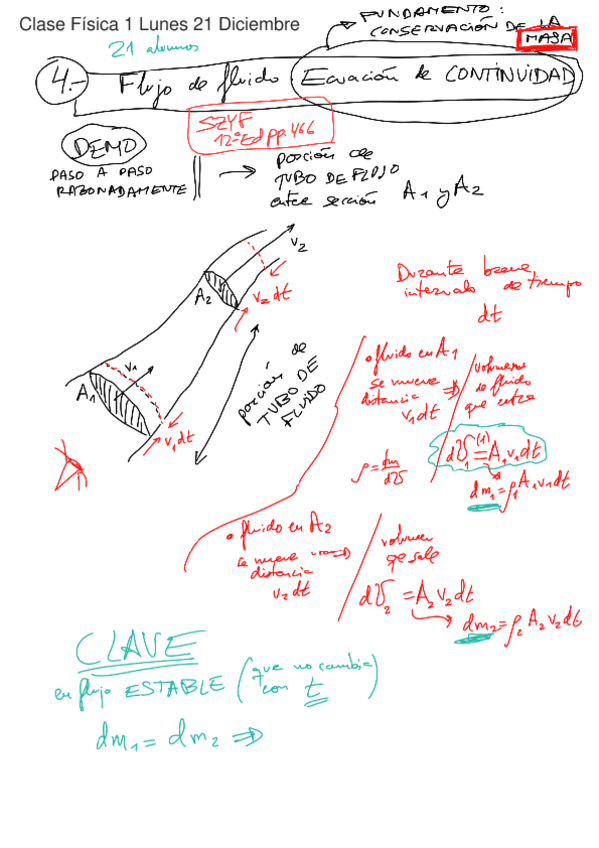 Clase Física 1 Lunes 21 Diciembre
21 alumnos
FUNDAMENTO:
CONSERVACIÓN DE LA
MASA
4.- Flujo de fluido Ecuación de CONTINUIDAD
SZYF
12ªEd pp. 466
DEMO
PASO A PASO
RAZONADAMENTE
→ porción de
TUBO DE FLUJO
entre sección A1 y A2
v2
A2
v2 dt
v1
A1
v1 dt
porción de
TUBO DE
FLUIDO
Durante breve
intervalo de tiempo
dt
• fluido en A1
se mueve ⇒
distancia
v1 dt
volumen
de fluido
que entra
ρ = dm/dV
dV1 (1) = A1 v1 dt
dm1 = ρ1 A1 v1 dt
• fluido en A2
se mueve ⇒
distancia
v2 dt
volumen
que sale
dV2 = A2 v2 dt
dm2 = ρ2 A2 v2 dt
CLAVE
en flujo ESTABLE (que no cambia
con t)
dm1 = dm2 ⇒